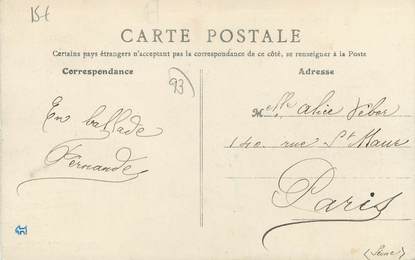 15€
CARTE POSTALE
Certains pays étrangers n'acceptant pas la correspondance de ce côté, se renseigner à la Poste
Correspondance
Adresse
93
En ballade
Fernande
Mlle Alice Veber
140 rue St Maur
Paris
(Seine)